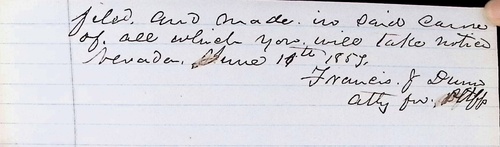 filed. and made. in said cause
of. all which you. will take notice
Nevada. June 11th 1857.
Francis. J Dunn
atty for. Pltff